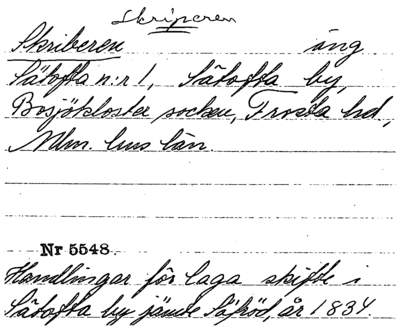 Skriperen
Skriberen äng
Sätofta n:r 1, Sätofta by,
Bosjökloster socken, Frosta hd,
Mlm. hus län.
Nr 5548.
Handlingar för laga skifte i
Sätofta by jämte Säfröd, år 1834.